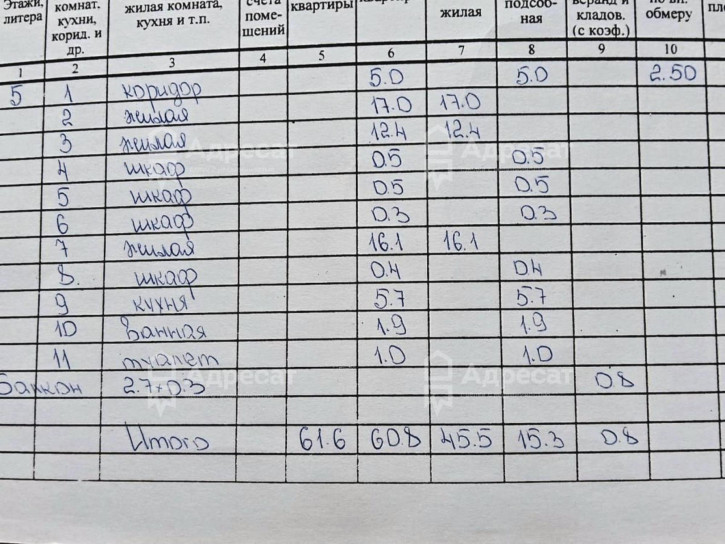 Этажи, литера | комнат. кухни, корид. и др. | жилая комната, кухня и т.п. | счета поме- щений | квартиры | подсоб- ная | веранд и кладов. (с коэф.) | обмеру
жилая
1 2 3 4 5 6 7 8 9 10
5 1 коридор 5.0 5.0 2.50
2 жилая 17.0 17.0
3 жилая 12.4 12.4
4 шкаф 0.5 0.5
5 шкаф 0.5 0.5
6 шкаф 0.3 0.3
7 жилая 16.1 16.1
8. шкаф 0.4 0.4
9 кухня 5.7 5.7
10 ванная 1.9 1.9
11 туалет 1.0 1.0
Балкон 2.7×0.3 0.8
Итого 61.6 60.8 45.5 15.3 0.8
Адресат
Адресат
Адресат
Адресат